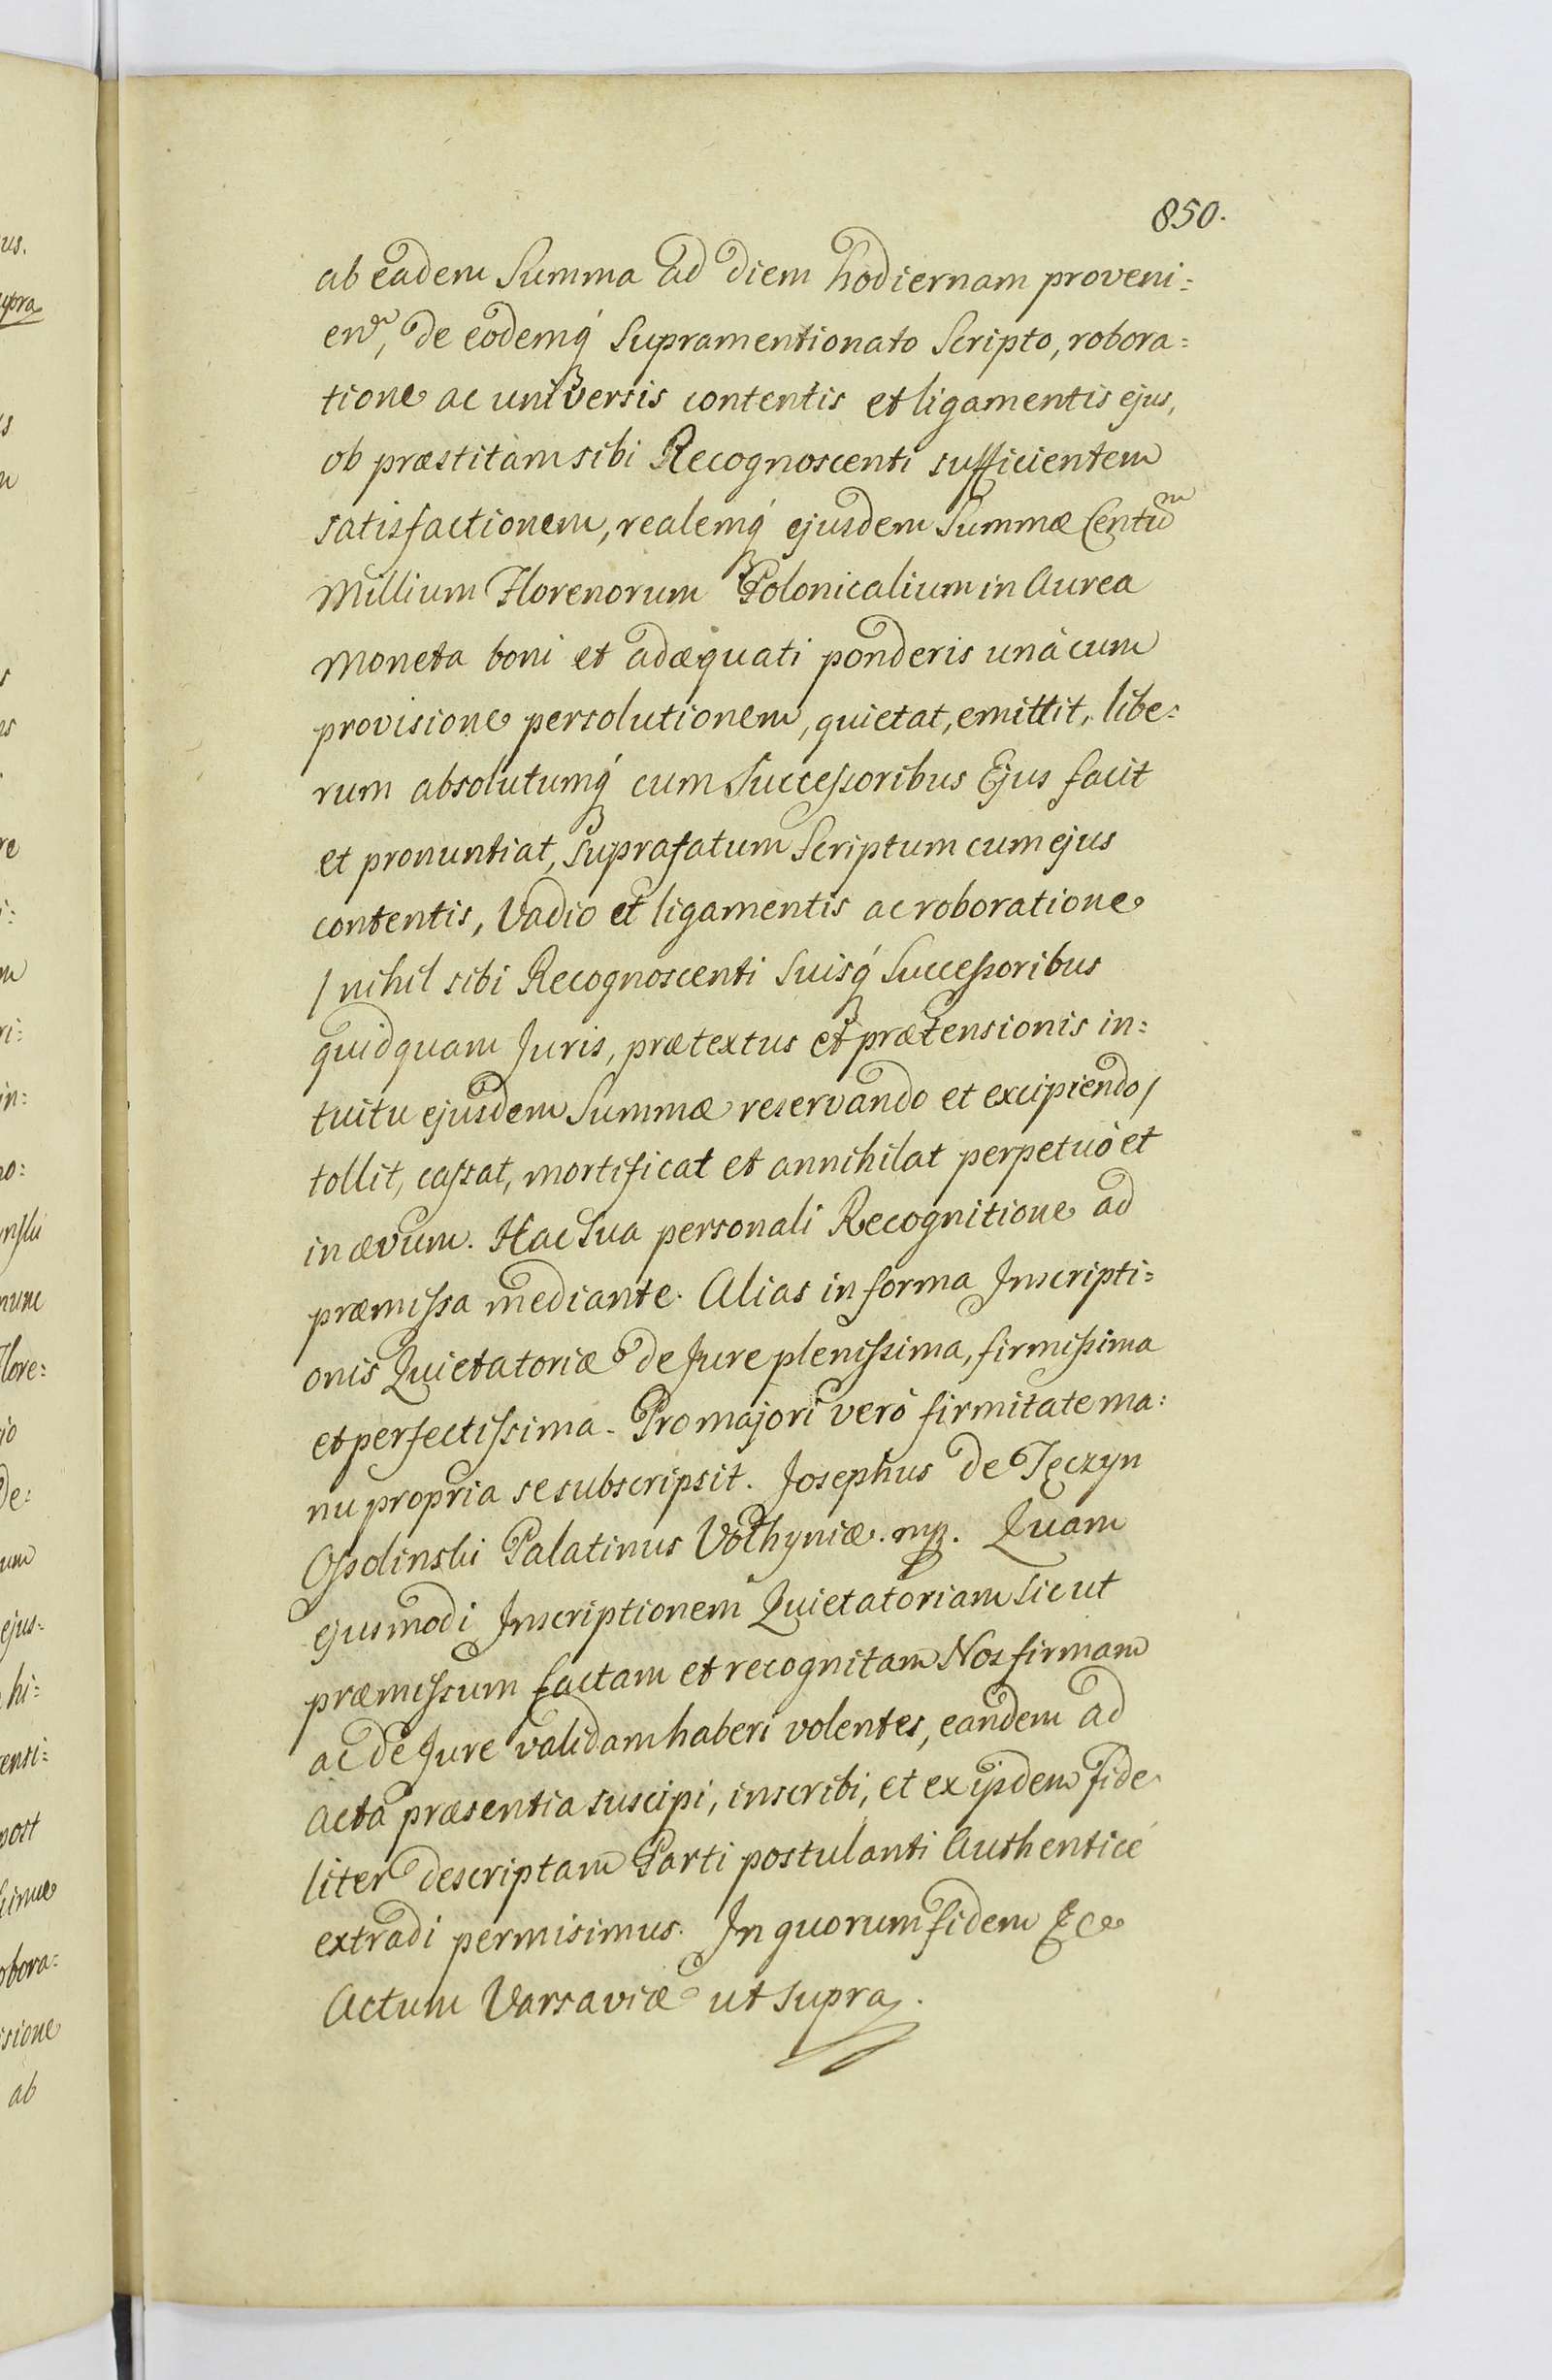 850.
ab eadem Summa ad diem hodiernam proveni=
en, de eodemq́ Supramentionato Scripto, robora=
tione ac universis contentis et ligamentis ejus,
ob præstitam sibi Recognoscenti sufficientem
satisfactionem, realemq́ ejusdem Summæ Centu͠m
Millium Florenorum Polonicalium in Aurea
Moneta boni et adæquati ponderis unà cum
provisione persolutionem, quietat, emittit, libe=
rum absolutumq́ cum Successoribus Ejus facit
et pronuntiat, Suprafatum Scriptum cum ejus
contentis, Vadio et ligamentis ac roboratione
/ nihil sibi Recognoscenti Suisq́ Successoribus
quidquam Juris, prætextus et prætensionis in=
tuitu ejusdem Summæ reservando et excipiendo /
tollit, cassat, mortificat et annihilat perpetuò et
in ævum. Hac Sua personali Recognitione ad
præmissa mediante. Alias in forma Inscripti=
onis Quietatoriæ de Jure plenissima, firmissima
et perfectissima. Pro majori verò firmitate ma=
nu propria se subscripsit. Josephus de Tęczyn
Ossolinski Palatinus Volhyniæ. mp. Quam
ejusmodi Inscriptionem Quietatoriam sicut
præmissum factam et recognitam Nos firmam
ac de Jure validam haberi volentes, eandem ad
Acta præsentia suscipi, inscribi, et ex ijsdem fide
liter descriptam Parti postulanti Authenticè
extradi permisimus. In quorum fidem &c
Actum Varsaviæ ut supra.
us.
upra
s
re
i:
ri:
in:
no:
nunc
Flore:
de:
um
ejus=
hi=
ensi=
post
obora=
isione
ab